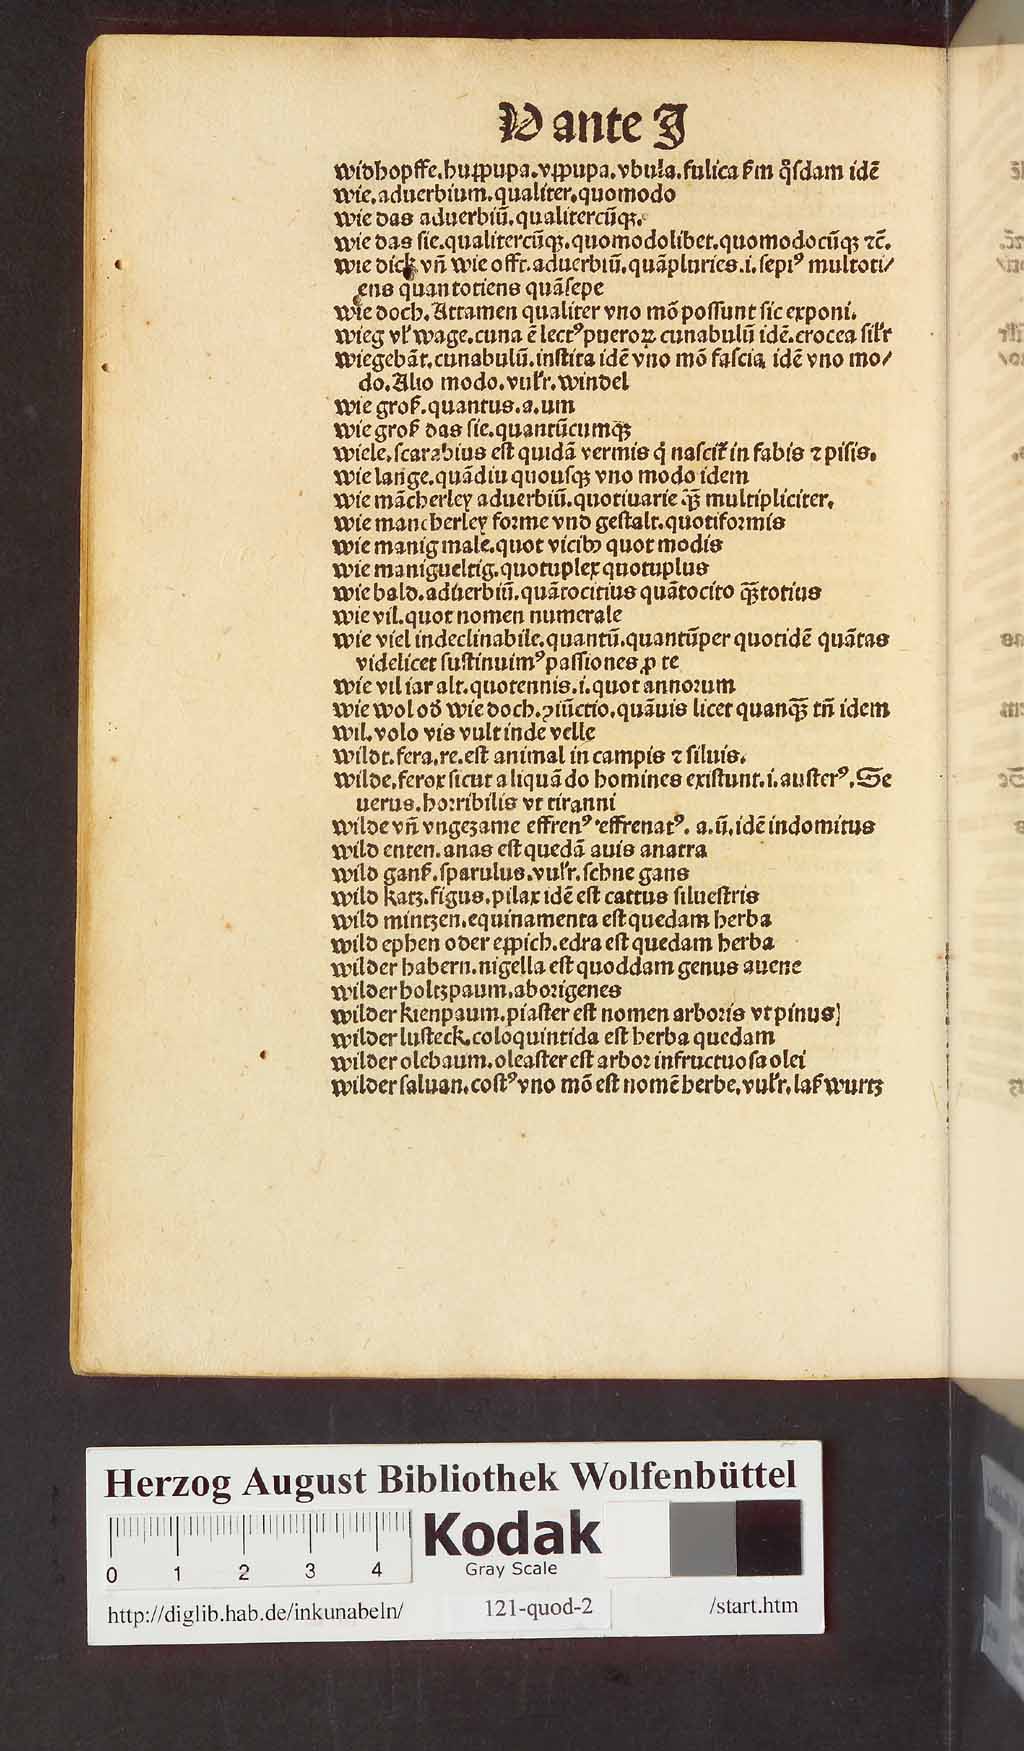 V ante J
widhopffe.huppupa.vppupa.vbula.fulica ẜm q̊ſdam idē
wie.aduerbium.qualiter.quomodo
wie das aduerbiū.qualitercūqꝫ.
wie das ſie.qualitercūqꝫ.quomodolibet.quomodocūqꝫ ⁊c̄.
wie dick vn̄ wie offt.aduerbiū.quāpluries.i.ſepiꝰ multoti/
ens quantotiens quāſepe
wie doch.Attamen qualiter vno mō poſſunt ſic exponi.
wieg vl̓ wage.cuna ē lectꝰ pueroꝝ cunabulū idē.crocea ſil̓r
wiegebāt.cunabulū.inſtita idē vno mō faſcia idē vno mo/
do.Alio modo.vul̓r.windel
wie groß.quantus.a.um
wie groß das ſie.quantūcumqꝫ
wiele.ſcarabius eſt quidā vermis q̇ naſcit᷑ in fabis ⁊ piſis.
wie lange.quādiu quouſqꝫ vno modo idem
wie mācherley aduerbiū.quotiuarie .qꝫ̄ multipliciter.
wie mancherley forme vnd geſtalt.quotiformis
wie manig male.quot vicibꝰ quot modis
wie manigueltig.quotuplex quotuplus
wie bald.aduerbiū.quātocitius quātocito qꝫ̄totius
wie vil.quot nomen numerale
wie viel indeclinabile.quantū.quantūper quotidē quātas
videlicet ſuſtinuimꝰ paſſiones ꝓ te
wie vil iar alt.quotennis.i.quot annorum
wie wol od̓ wie doch.ↄiūctio.quāuis licet quanqꝫ̄ tn̄ idem
wil.volo vis vult inde velle
wildt.fera.re.eſt animal in campis ⁊ ſiluis.
wilde.ferox ſicut aliquā do homines exiſtunt.i.auſterꝰ.Se
uerus.horribilis vt tiranni
wilde vn̄ vngezame effrenꝰ effrenatꝰ. a.ū.idē indomitus
wild enten.anas eſt quedā auis anatra
wild ganß.ſparulus.vul̓r.ſchne gans
wild katz.figus.pilax idē eſt cattus ſilueſtris
wild mintzen.equinamenta eſt quedam herba
wild ephen oder eppich.edra eſt quedam herba
wilder habern.nigella eſt quoddam genus auene
wilder holtzpaum.aborigenes
wilder kienpaum.piaſter eſt nomen arboris vt pinus)
wilder luſteck.coloquintida eſt herba quedam
wilder olebaum.oleaſter eſt arbor infructuoſa olei
wilder ſaluan.coſtꝰ vno mō eſt nomē herbe.vul̓r.laß wurtz
Herzog August Bibliothek Wolfenbüttel
Kodak
Gray Scale
0 1 2 3 4
http://diglib.hab.de/inkunabeln/ 121-quod-2 /start.htm